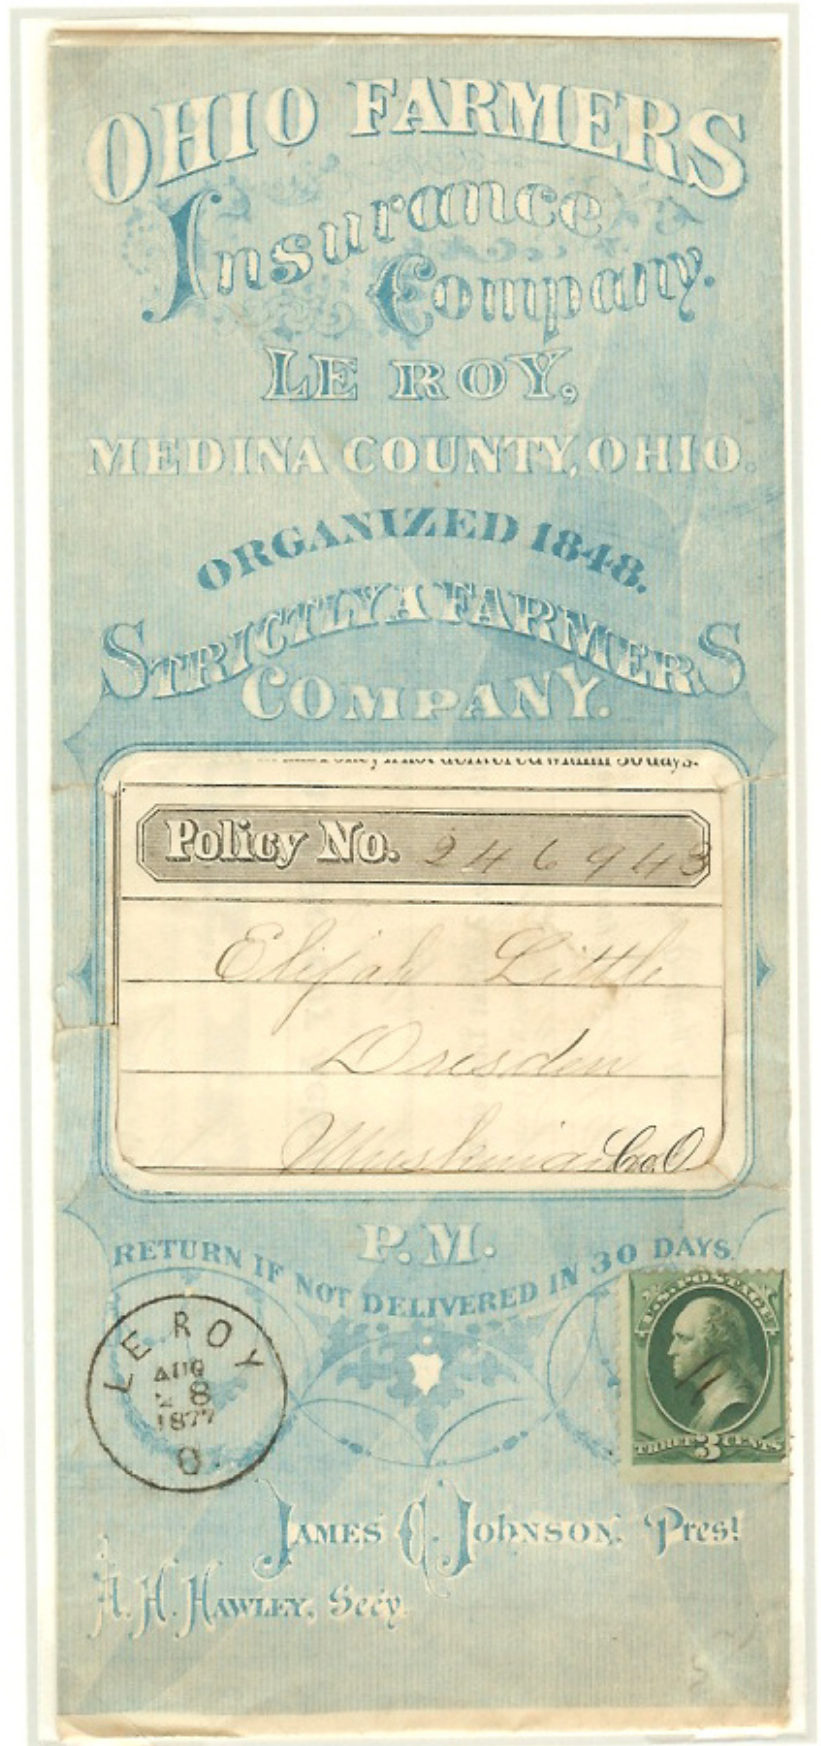 OHIO FARMERS
Insurance
Company.
LE ROY,
MEDINA COUNTY, OHIO.
ORGANIZED 1848.
STRICTLY A FARMERS
COMPANY.
not delivered within 30 days.
Policy No. 246943
Elijah Little
Dresden
Co. O
P. M.
RETURN IF NOT DELIVERED IN 30 DAYS.
LE ROY
AUG
28
1877
O.
U.S. POSTAGE
THREE 3 CENTS
JAMES C. JOHNSON, Prest
A. H. HAWLEY, Secy.